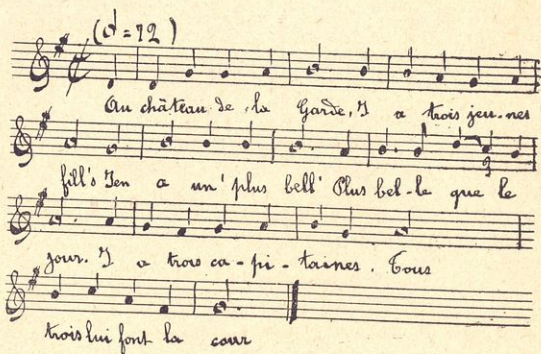 (d = 72)
Au château de la Garde, Y a trois jeu-nes
fill's Y en a un' plus bell' Plus bel-le que le
jour. Y a trois ca-pi-taines. Tous
trois lui font la cour